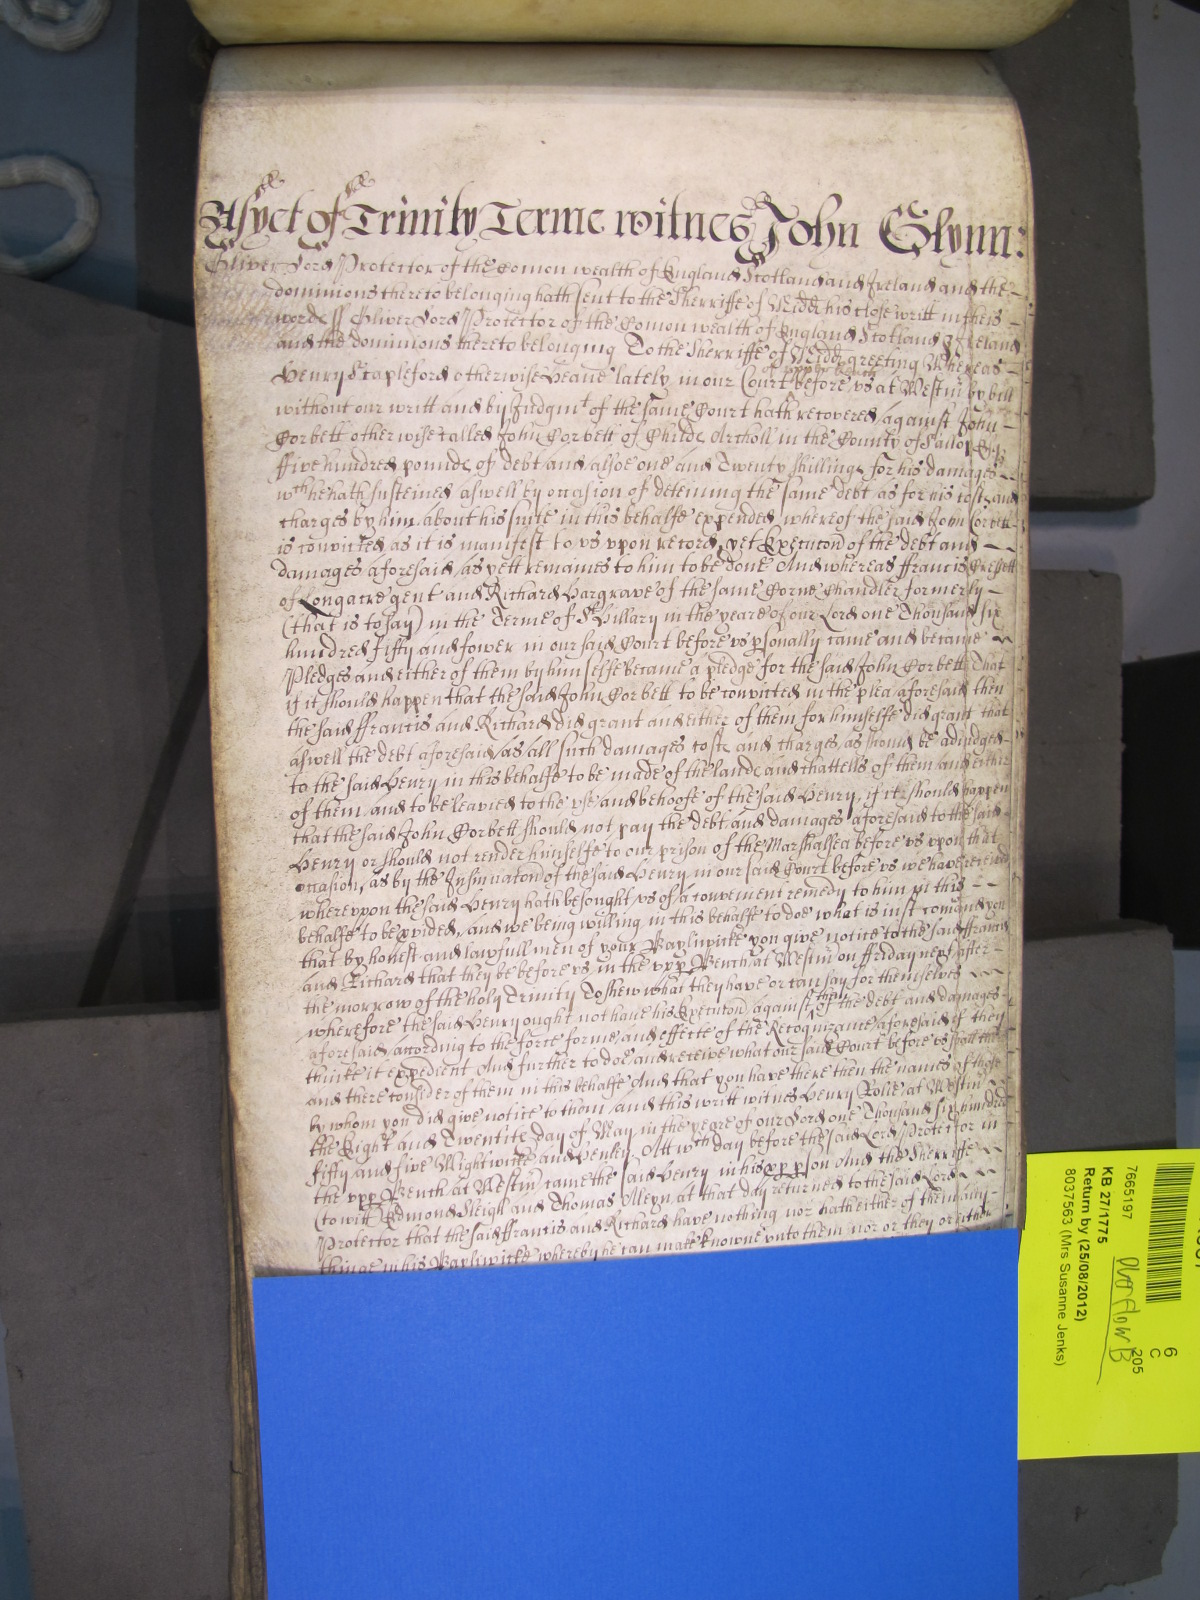 As yet of Trinity Terme witnes John Glynn:
Oliver Lord Protector of the Comon wealth of England Scotland and Ireland and the
dominions thereto belonging hath sent to the Sherriffe of Midd his close writt in theis
wordes ss Oliver Lord Protector of the Comon wealth of England Scotland & Ireland
and the dominions thereto belonging To the Sherriffe of Midd greeting Whereas
Henry Stapleford otherwise Heane lately in our Court before vs at Westm by bill
without our writt and by Judgmt of the same Court hath recovered against John
Corbett otherwise called John Corbett of Childe Archoll in the County of Sallop
ffive hundred pounds of debt and alsoe one and Twenty shillings for his damages
wch he hath susteined aswell by occasion of deteining the same debt as for his costs and
charges by him about his suite in this behalfe expended whereof the said John Corbett
is convicted as it is manifest to vs vpon record, yet Execucon of the debt and
damages aforesaid as yett remaines to him to be done And whereas ffrancis Cressett
of Longacre gent and Richard Hargrave of the same Corne Chandler formerly
(that is to say) in the Terme of St Hillary in the yeare of our Lord one Thousand six
hundred fifty and fower in our said Court before vs psonally came and became
Pledges and either of them by himselfe became a pledge for the said John Corbett That
if it should happen that the said John Corbett to be convicted in the plea aforesaid then
the said ffrancis and Richard did grant and either of them for himselfe did grant that
aswell the debt aforesaid as all such damages costs and charges as should be adiudged
to the said Henry in this behalfe to be made of the lands and chattells of them and either
of them and to be leavied to the vse and behoofe of the said Henry, if itt should happen
that the said John Corbett should not pay the debt and damages aforesaid to the said
Henry or should not render himselfe to our prison of the Marshalsea before vs vpon that
occasion, as by the Insinuacon of the said Henry in our said Court before vs we have received
wherevpon the said Henry hath besought vs of a convenient remedy to him in this
behalfe to be pvided, and we being willing in this behalfe to doe what is iust comand you
that by honest and lawfull men of your Bayliwicke you give notice to the said ffrancis
and Richard that they be before vs in the vpp Bench at Westm on ffriday next after
the morrow of the holy Trinity To shew what they have or can say for themselves
wherefore the said Henry ought not have his Execucon against them of the debt and damages
aforesaid according to the force forme and effecte of the Recognizance aforesaid if they
thinke it expedient And further to doe and receive what our said Court before vs shall then
and there consider of them in this behalfe And that you have there then the names of those
by whom you did give notice to them and this writt witnes Henry Rolle at Westm
the Eight and Twentith day of May in the yeare of our Lord one Thousand six hundred
fifty and five Wightwicke and Henley Att wch day before the said Lord Protector in
the vpp Bench at Westm came the said Henry in his pp pson And the Sherriffe
(to witt) Edmond Sleigh and Thomas Aleyn at that day returned to the said Lord
Protector that the said ffrancis and Richard have nothing nor hath either of them any
thinge in his Bayliwicke whereby he can make knowne vnto them nor or they or either
7665197
KB 27/1775
Return by (25/08/2012)
8037563 (Mrs Susanne Jenks)
Overflow B
6
C
205